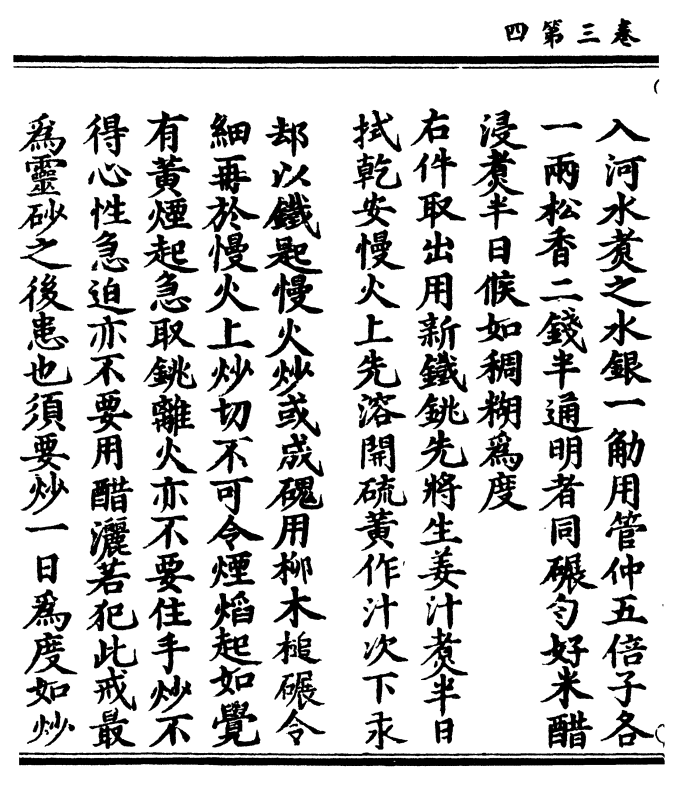 卷三第四
入河水煑之水銀一觔用管仲五倍子各
一兩松香二錢半通明者同碾勻好米醋
浸煑半日候如稠糊爲度
右件取出用新鐵銚先將生姜汁煑半日
拭乾安慢火上先溶開硫黃作汁次下汞
却以鐵匙慢火炒或成磈用柳木槌碾令
細再於慢火上炒切不可令煙焰起如覺
有黃煙起急取銚離火亦不要住手炒不
得心性急迫亦不要用醋灑若犯此戒最
爲靈砂之後患也須要炒一日爲度如炒